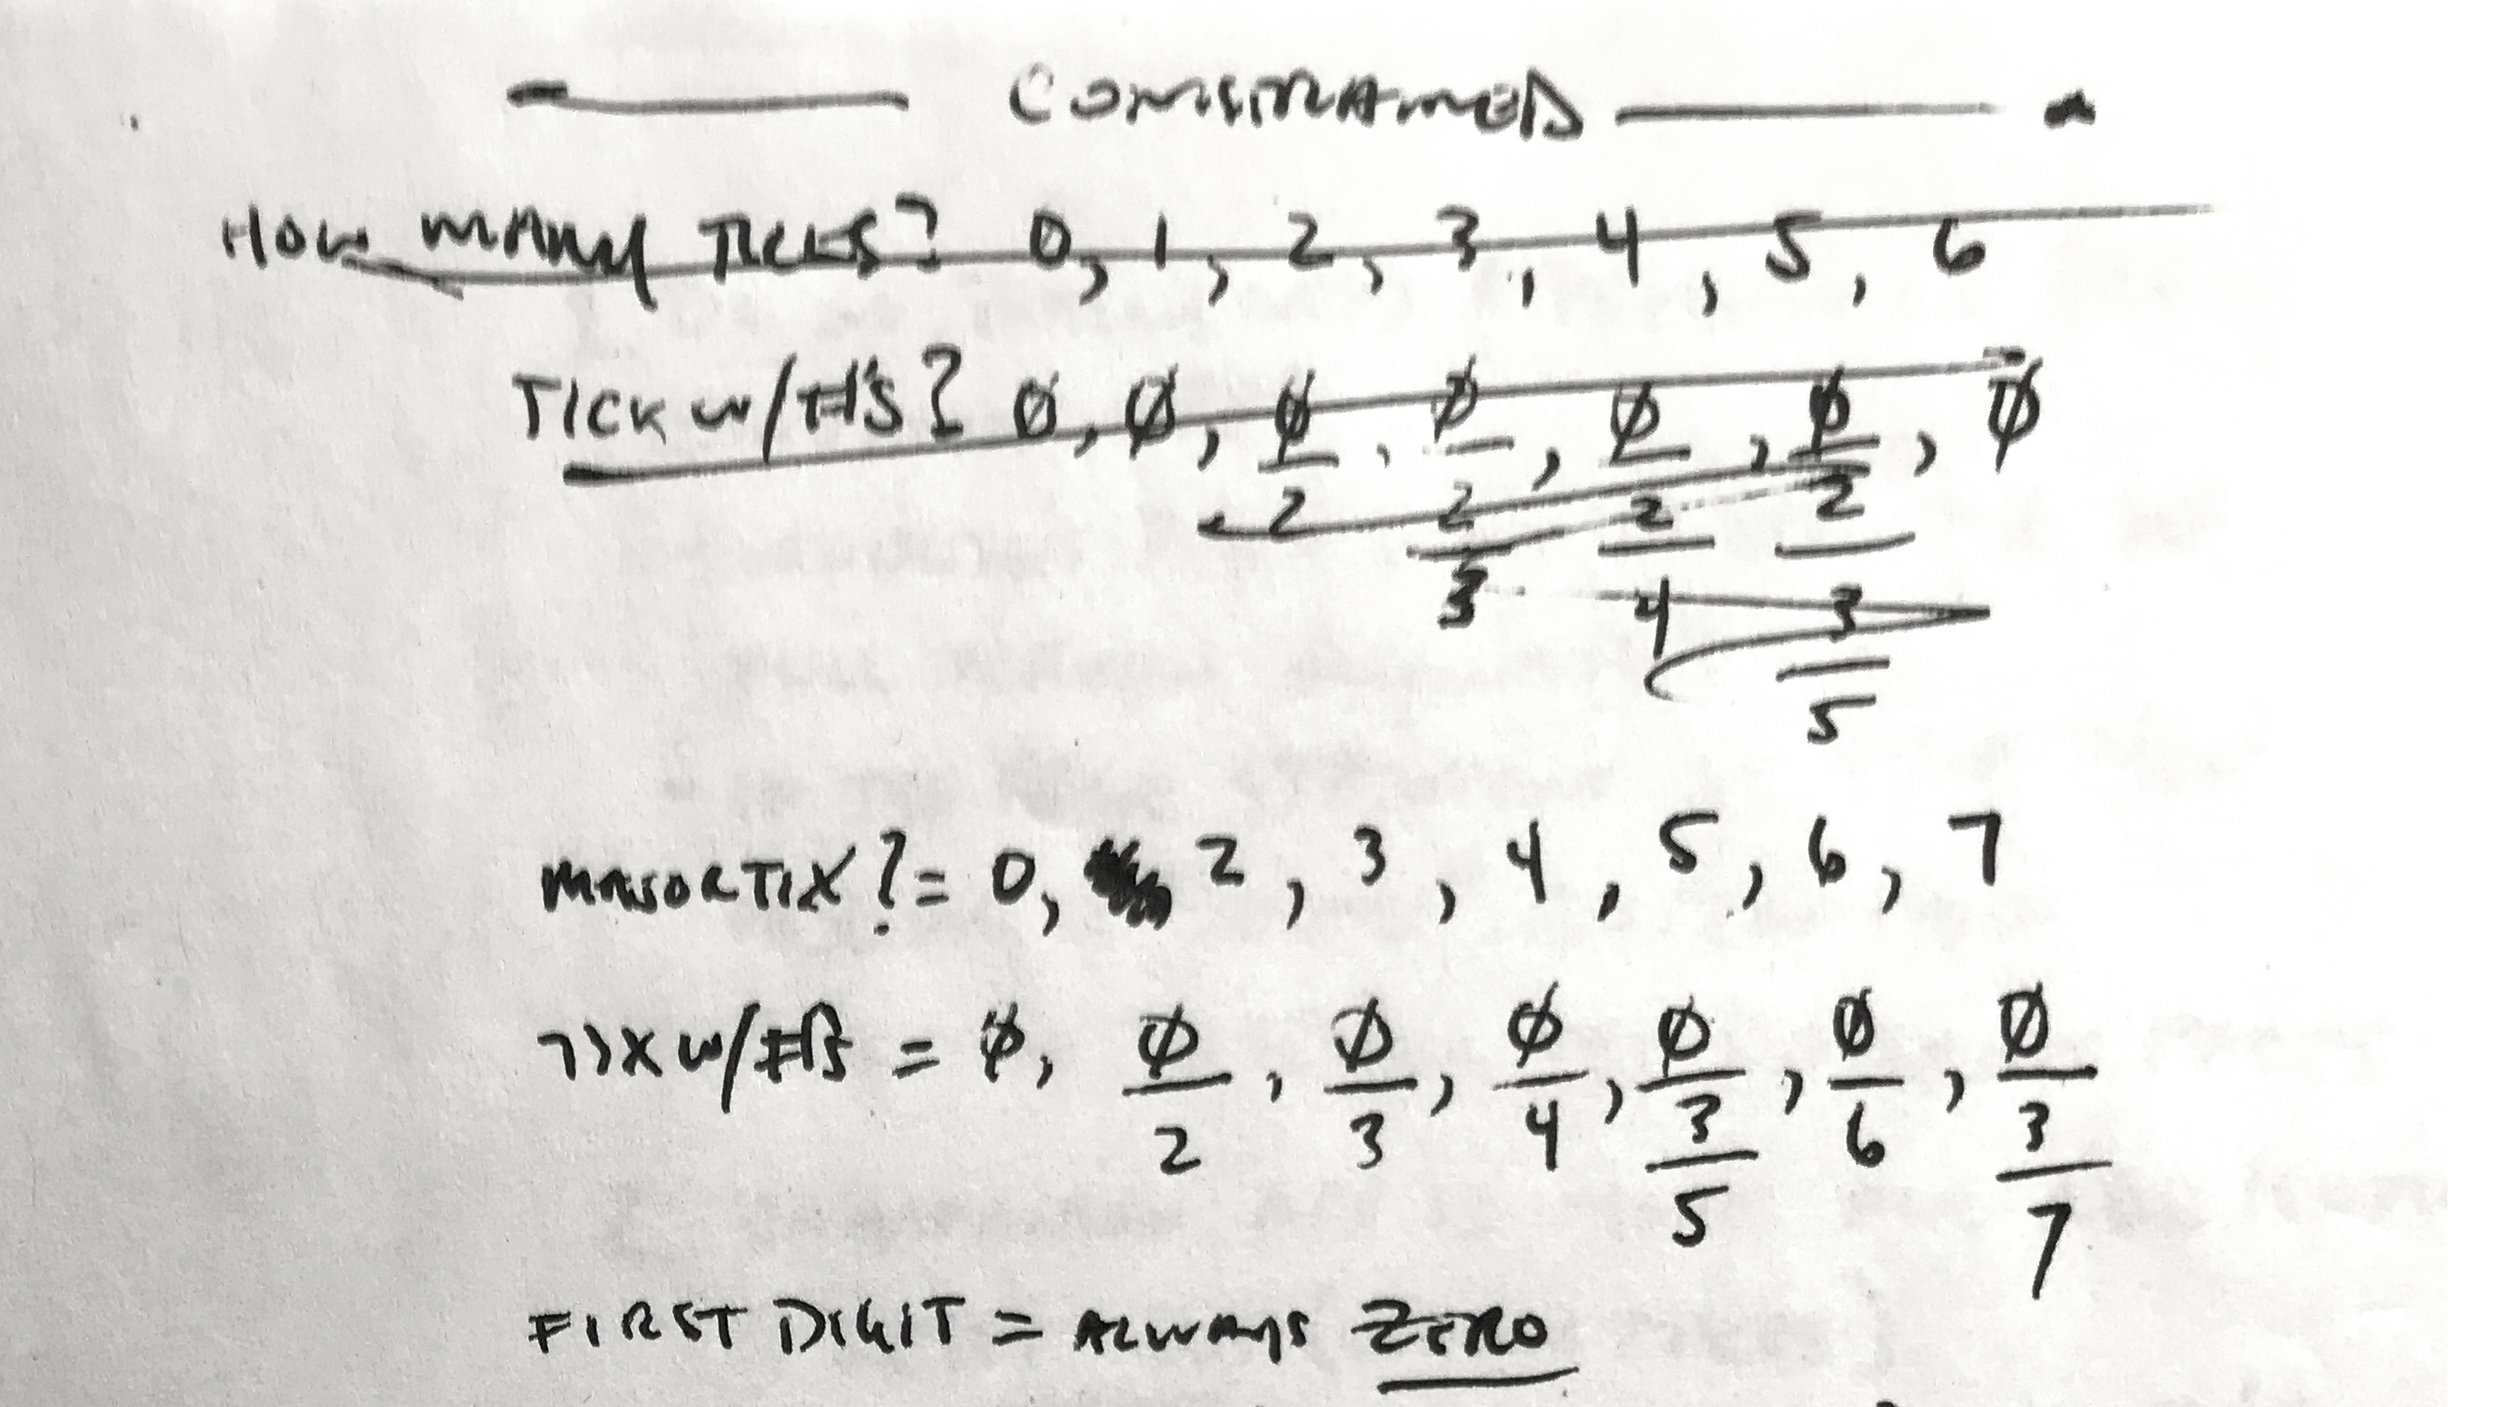 CONSTRAINED
HOW MANY TICKS? 0, 1, 2, 3, 4, 5, 6
TICK W/#'S? Ø, Ø, Ø, Ø, Ø, Ø, Ø
2 2 2 2
3 4 3
5
MAJOR TIX? = 0, 2, 3, 4, 5, 6, 7
TIX W/#'S = Ø, Ø, Ø, Ø, Ø, Ø, Ø
2 3 4 3 6 3
5 7
FIRST DIGIT = ALWAYS ZERO